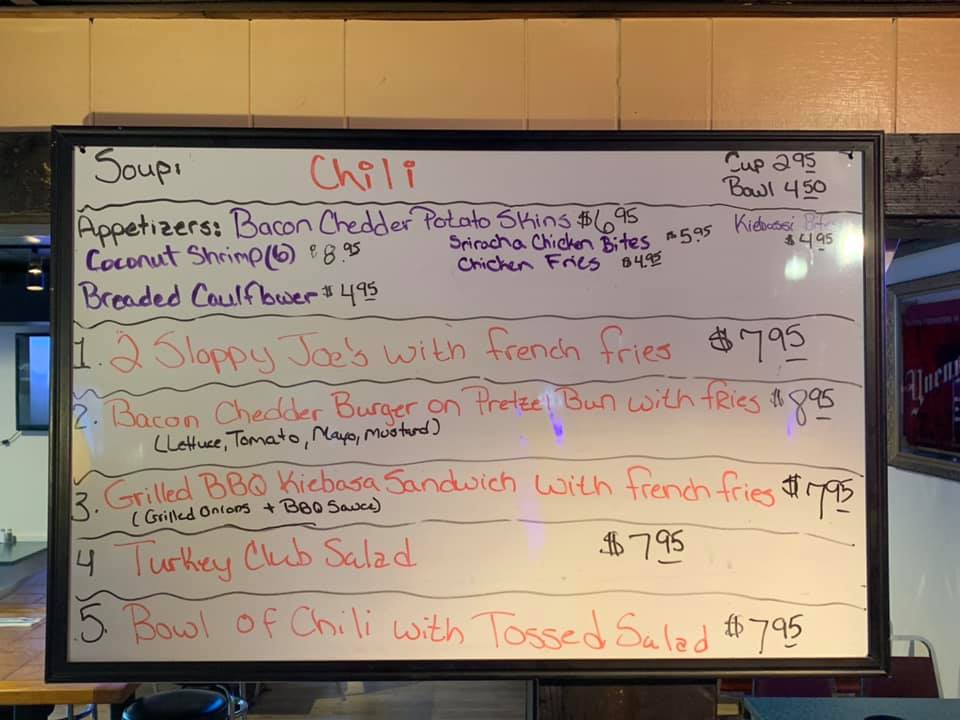 Soup: Chili Cup 2.95
Bowl 4.50
Appetizers: Bacon Chedder Potato Skins $6.95 Kiebassi Bites $4.95
Coconut Shrimp (6) $8.95 Sriracha Chicken Bites $5.95
Chicken Fries $4.95
Breaded Caulflower $4.95
1. 2 Sloppy Joe's with french fries $7.95
2. Bacon Chedder Burger on Pretzel Bun with fRies $8.95
(Lettuce, Tomato, Mayo, Mustard)
3. Grilled BBQ Kiebasa Sandwich with french fries $7.95
(Grilled Onions + BBQ Sauce)
4 Turkey Club Salad $7.95
5. Bowl of Chili with Tossed Salad $7.95